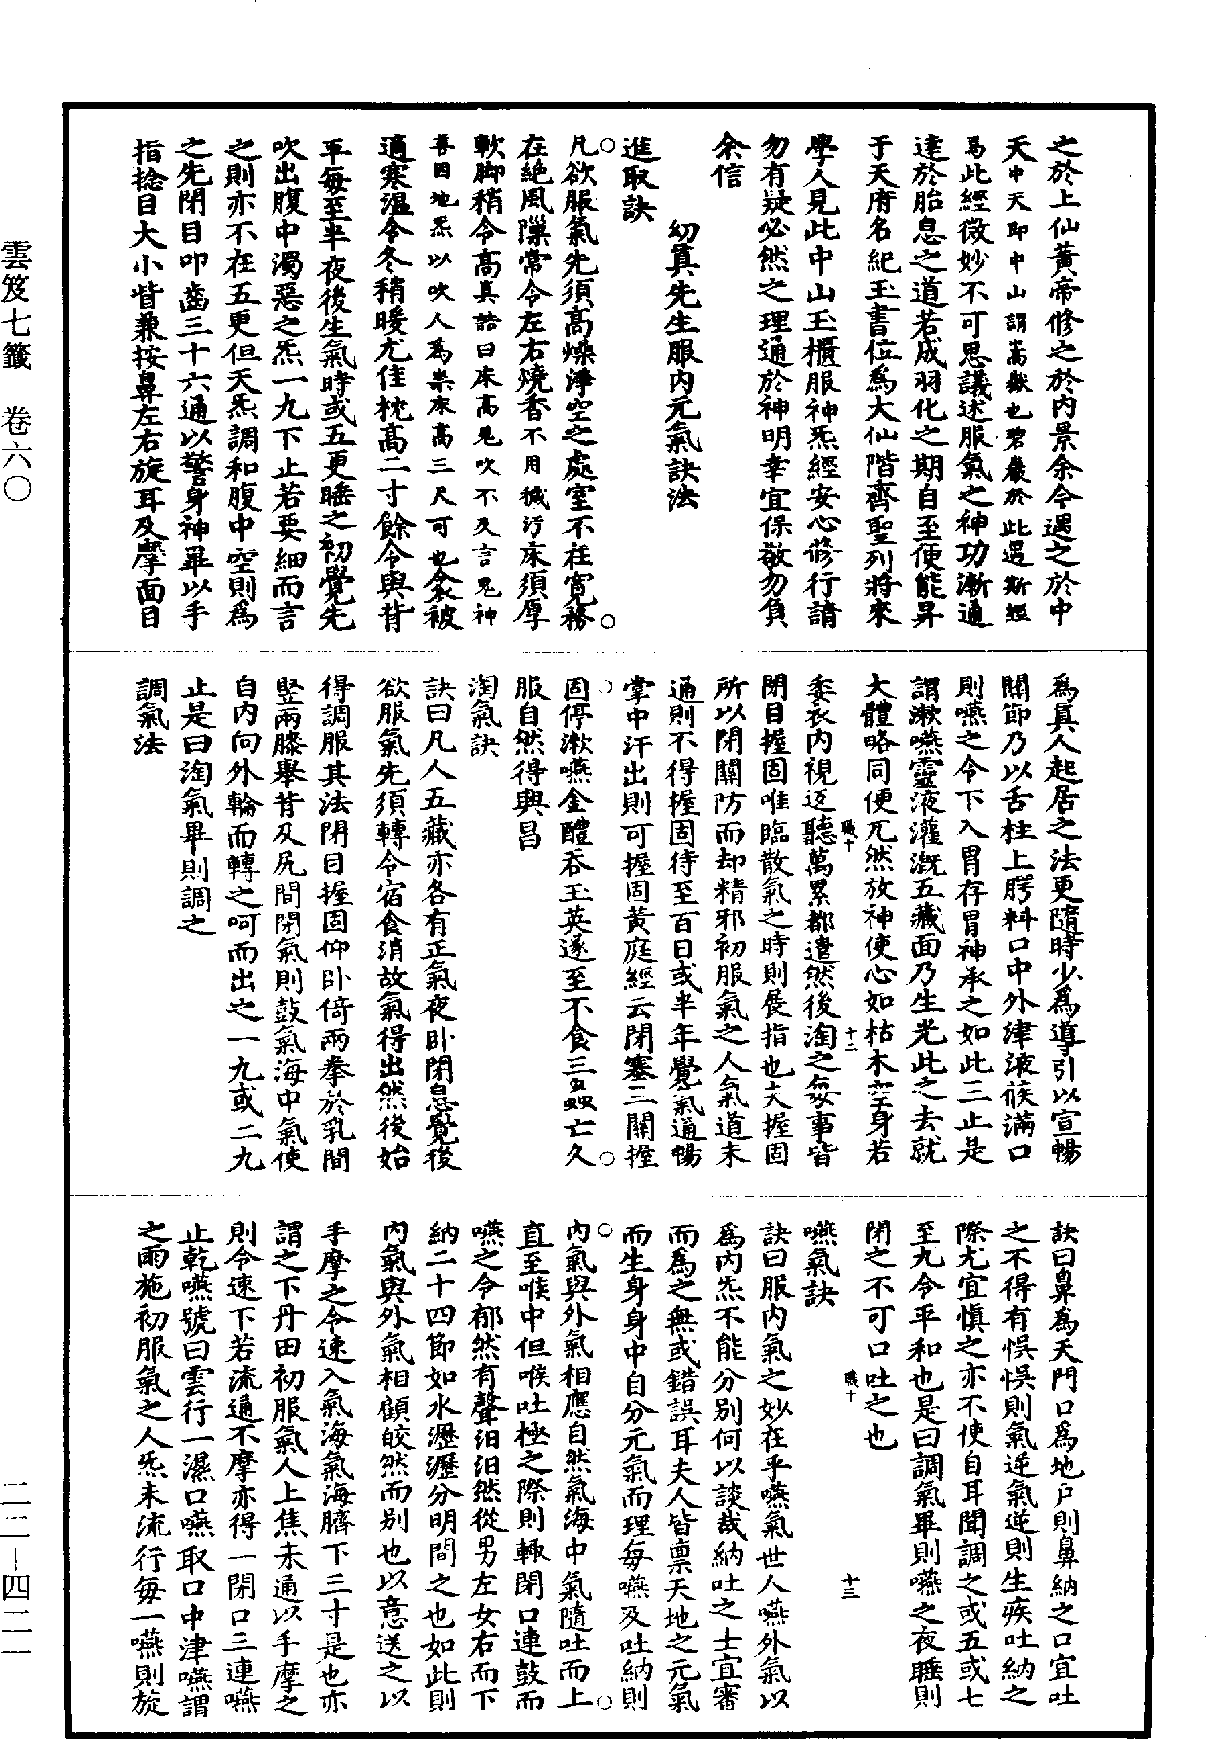 之於上仙黃帝修之於內景余今遇之於中
天中天即中山謂嵩嶽也碧巖於此遇斯經
焉此經微妙不可思議述服氣之神功漸通
達於胎息之道若成羽化之期自至便能昇
于天府名紀玉書位為大仙階齊聖列將來
學人見此中山玉櫃服神炁經安心修行請
勿有疑必然之理通於神明幸宜保敬勿負
余信
幻真先生服內元氣訣法
進取訣
凡欲服氣先須高燥淨空之處室不在寬務
在絕風隟常令左右燒香不用穢汙床須厚
軟脚稍令高真誥曰床高鬼吹不及言鬼神
善因地炁以吹人為祟床高三尺可也衾被
適寒溫令冬稍暖尤佳枕高二寸餘令與背
平每至半夜後生氣時或五更睡之初覺先
吹出腹中濁惡之炁一九下止若要細而言
之則亦不在五更但天炁調和腹中空則為
之先閉目叩齒三十六通以警身神畢以手
指捻目大小眥兼按鼻左右旋耳及摩面目
為真人起居之法更隨時少為導引以宣暢
關節乃以舌柱上腭料口中外津液候滿口
則嚥之令下入胃存胃神承之如此三止是
謂漱嚥靈液灌溉五藏面乃生光此之去就
大體略同便兀然放神使心如枯木空身若
委衣內視返聽萬累都遣然後淘之每事皆
閉目握固唯臨散氣之時則展指也夫握固
所以閉關防而却精邪初服氣之人氣道未
通則不得握固待至百日或半年覺氣通暢
掌中汗出則可握固黃庭經云閉塞三關握
固停漱嚥金醴吞玉英遂至不食三蟲亡久
服自然得興昌
淘氣訣
訣曰凡人五藏亦各有正氣夜臥閉息覺後
欲服氣先須轉令宿食消故氣得出然後始
得調服其法閉目握固仰臥倚兩拳於乳間
竪兩膝舉背及尻間閉氣則鼓氣海中氣使
自內向外輪而轉之呵而出之一九或二九
止是曰淘氣畢則調之
調氣法
訣曰鼻為天門口為地戶則鼻納之口宜吐
之不得有悞悞則氣逆氣逆則生疾吐納之
際尤宜慎之亦不使自耳聞調之或五或七
至九令平和也是曰調氣畢則嚥之夜睡則
閉之不可口吐之也
嚥氣訣
訣曰服內氣之妙在乎嚥氣世人嚥外氣以
為內炁不能分別何以談哉納吐之士宜審
而為之無或錯誤耳夫人皆稟天地之元氣
而生身身中自分元氣而理每嚥及吐納則
內氣與外氣相應自然氣海中氣隨吐而上
直至喉中但喉吐極之際則輒閉口連鼓而
嚥之令郁然有聲汩汩然從男左女右而下
納二十四節如水瀝瀝分明間之也如此則
內氣與外氣相顧皎然而別也以意送之以
手摩之令速入氣海氣海臍下三寸是也亦
謂之下丹田初服氣人上焦未通以手摩之
則令速下若流通不摩亦得一閉口三連嚥
止乾嚥號曰雲行一濕口嚥取口中津嚥謂
之雨施初服氣之人炁未流行每一嚥則旋
職十
十二
職十
十三
雲笈七籤　卷六〇
二二—四二一